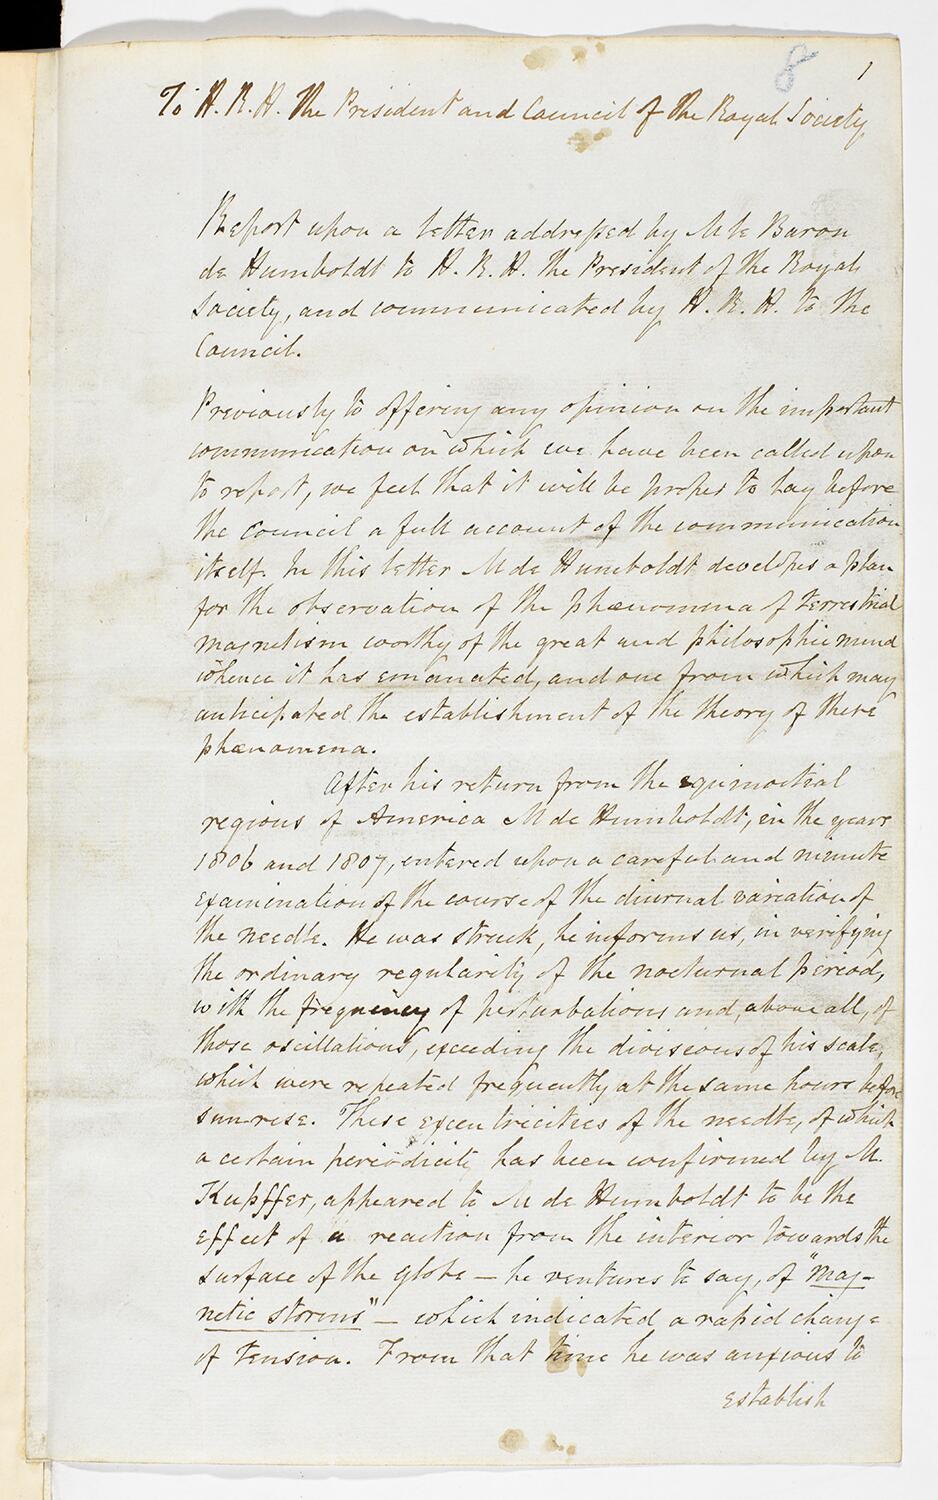 8
1
To H. R. H. The President and Council of the Royal Society
Report upon a letter addressed by M le Baron
de Humboldt to H. R. H. the President of the Royal
Society, and communicated by H. R. H. to the
Council.
Previously to offering any opinion on the important
communication on which we have been called upon
to report, we feel that it will be proper to lay before
the Council a full account of the communication
itself. In this letter M de Humboldt developes a plan
for the observation of the phænomena of terrestrial
magnetism worthy of the great and philosophic mind
whence it has emanated, and one from which may
anticipated the establishment of the theory of these
phænomena.
After his return from the equinoctial
regions of America M de Humboldt, in the years
1806 and 1807, entered upon a careful and minute
examination of the course of the diurnal variation of
the needle. He was struck, he informs us, in verifying
the ordinary regularity of the nocturnal period,
with the frequency of perturbations and, above all, of
those oscillations, exceeding the divisions of his scale,
which were repeated frequently at the same hours before
sun-rise. These excentricities of the needle, of which
a certain periodicity has been confirmed by M.
Kupffer, appeared to M de Humboldt to be the
effect of a reaction from the interior towards the
surface of the globe — he ventures to say, of "mag-
netic storms" — which indicated a rapid change
of tension. From that time he was anxious to
establish